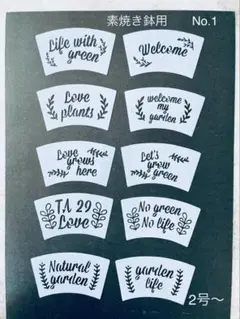 素焼き鉢用 No.1
Life with
green
Welcome
Love
plants
welcome
my
garden
Love
grows
here
Let's
grow
green
T.A 29
Love
No green
No life
Natural
garden
garden
life
2号〜